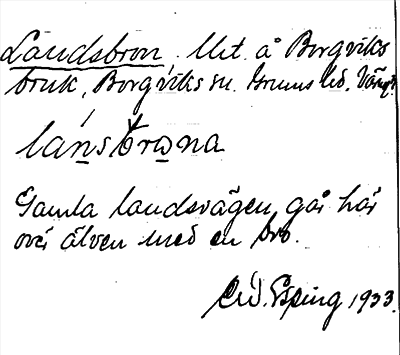 Landsbron, Ut. å Borgviks
bruk, Borgviks sn. Grums hd. Värml
lánstrona
Gamla landsvägen går här
över älven med en bro.
Eid. Esping 1933.